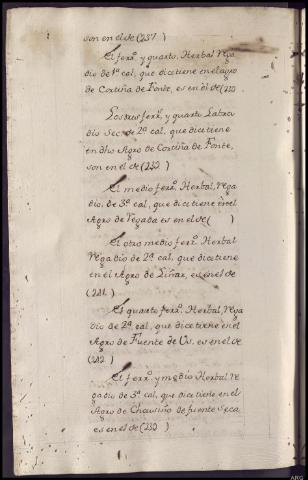 son en el de (237)
El ferrº. y quarto, Herbal Rega
dio de 1ª cal, que dice tiene en el agro
de Cortiña de Fonte, es en el de (230
Los tres ferrs. y quarto Labra
dio Sec. de 2ª cal, que dice tiene
en dho Agro de Cortiña de Fonte,
son en el de (230)
El medio ferrº. Herbal, Rega
dio, de 3ª cal, que dice tiene en el
Agro de Regada es en el de ( )
El otro medio ferrº. Herbal
Regadio de 2ª cal, que dice tiene
en el Agro de Liñar, es en el de
(281.)
El quarto ferrº. Herbal, Rega
dio de 2ª cal, que dice tiene en el
Agro de Fuente de Os, es en el de
(282.)
El ferrº. y medio Herbal Re
gadio de 3ª cal, que dice tiene en el
Agro de Chousiño de fuente Seca,
es en el de (230)
ARG